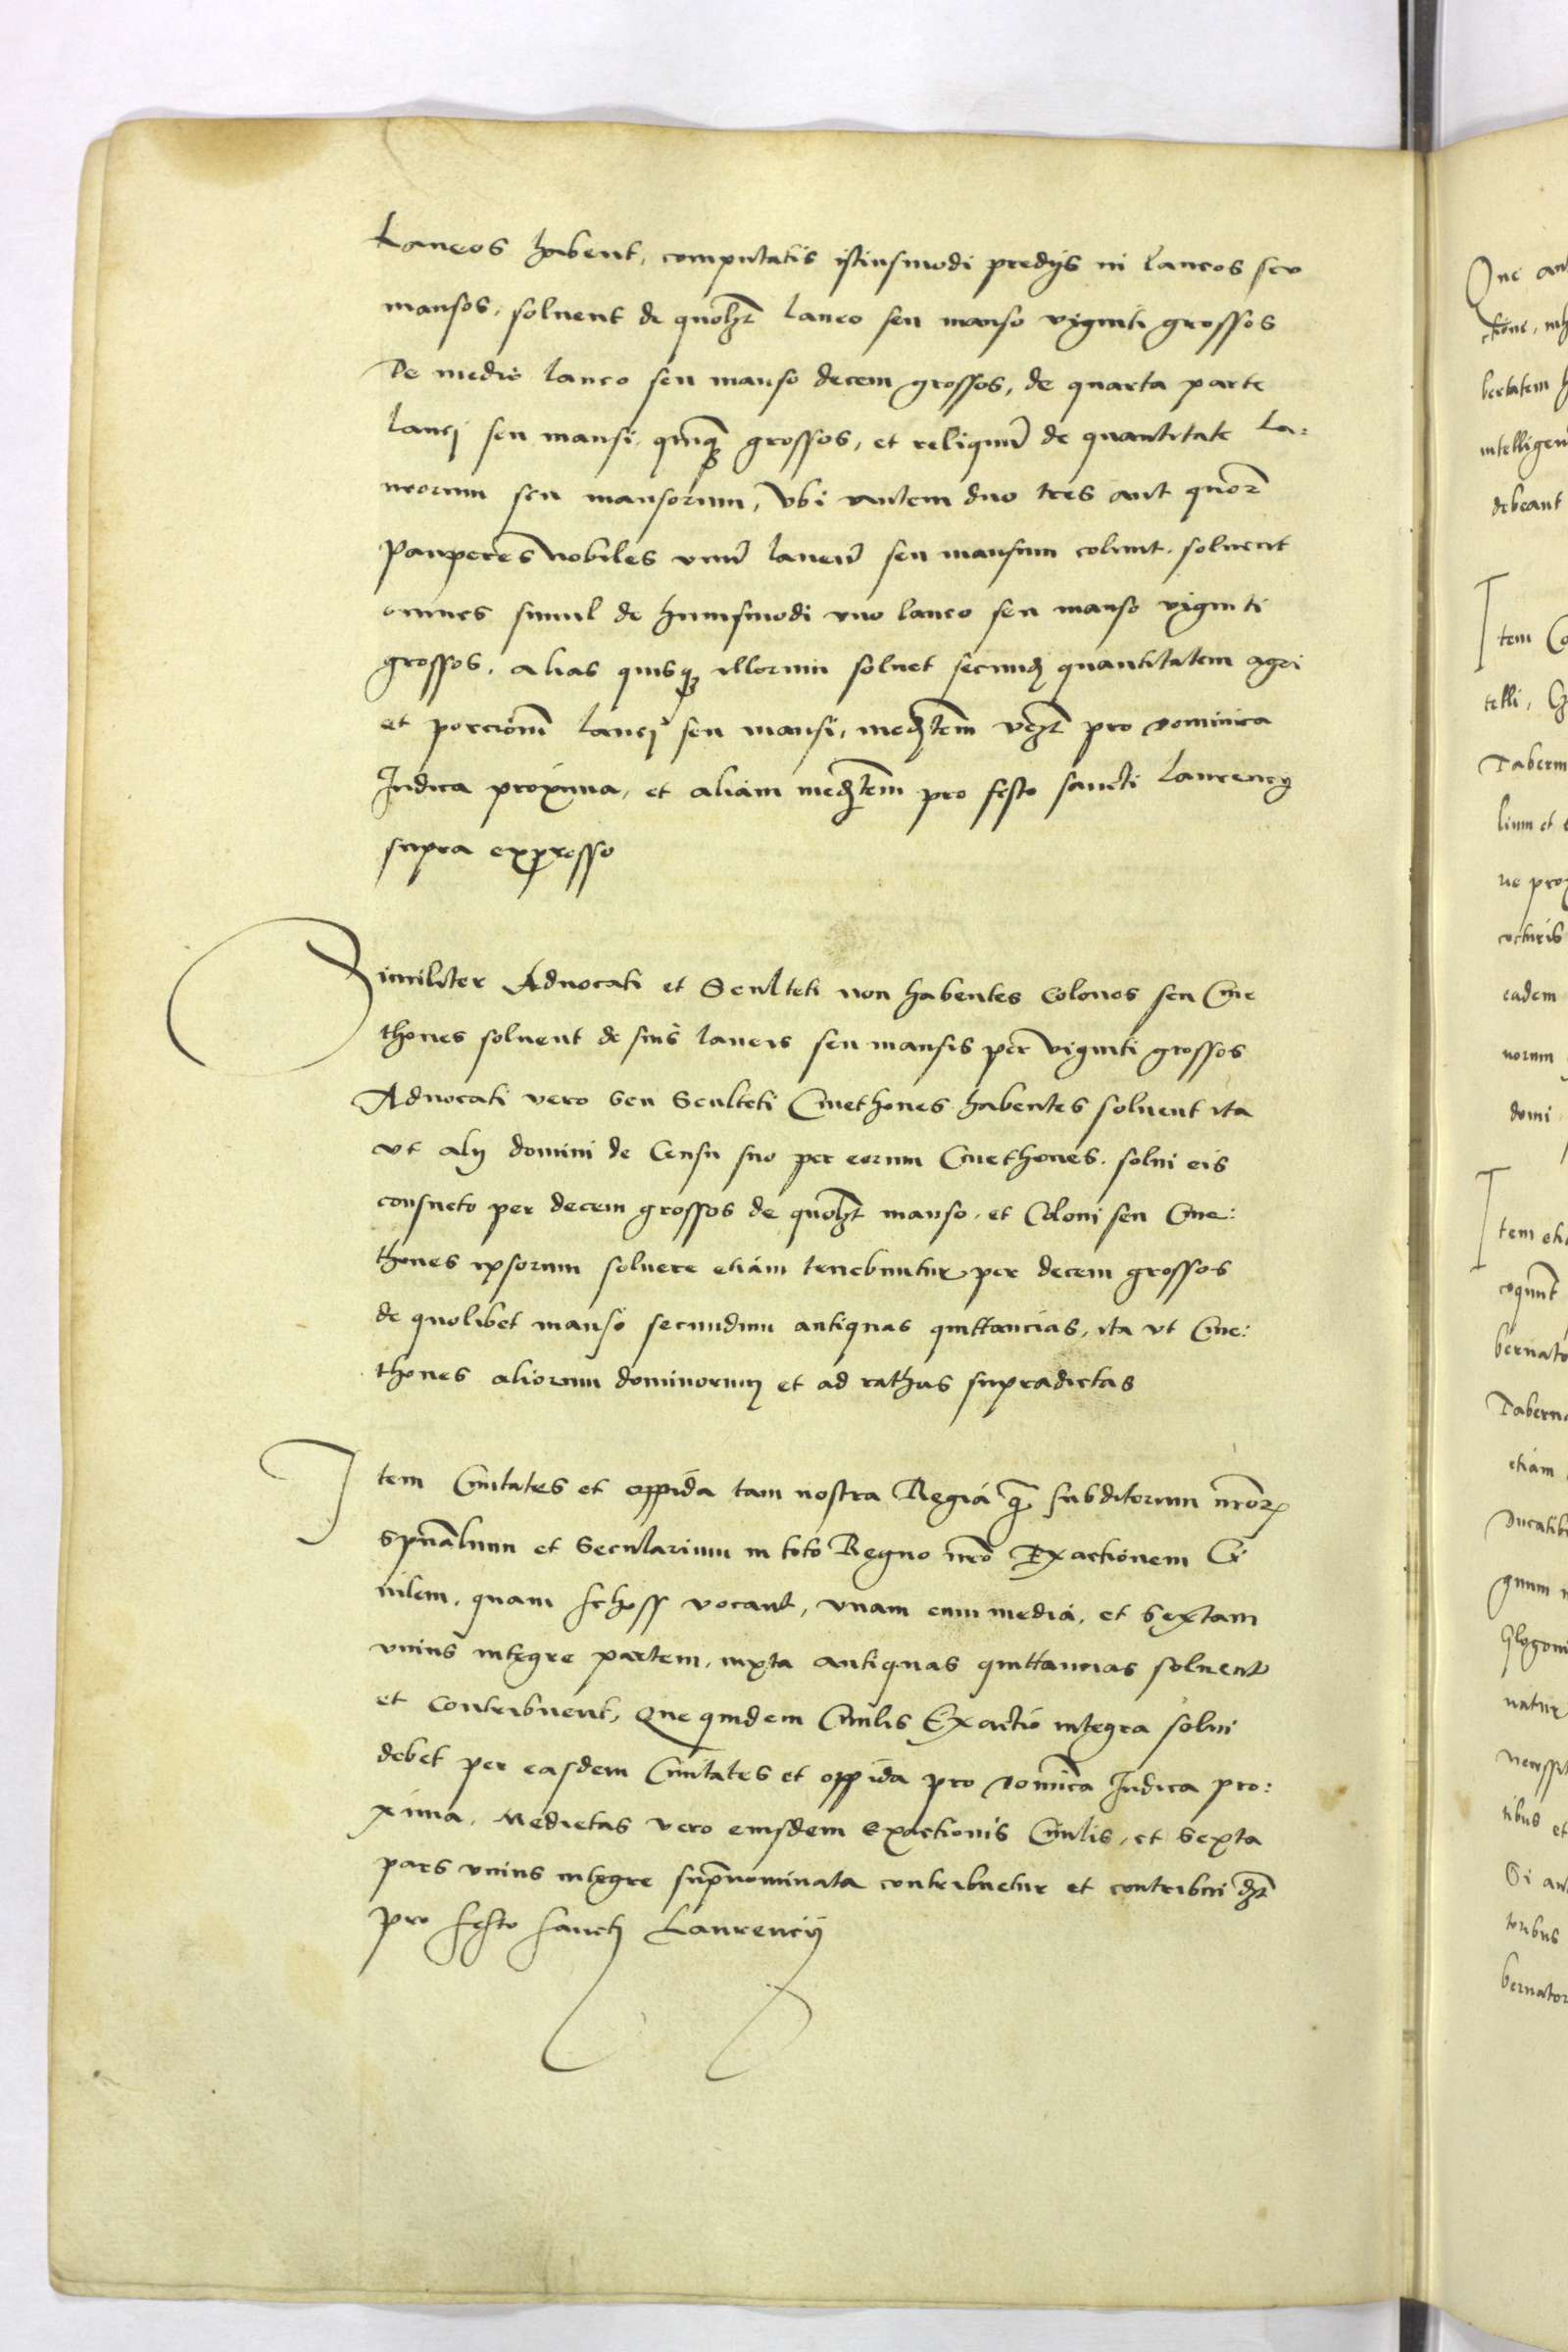 Laneos habent, computatis istiusmodi predijs in laneos seu
mansos, soluent de quolʒt laneo seu manso viginti grossos
De medio laneo seu manso decem grossos, de quarta parte
lanej seu mansi, quinqȝ grossos, et reliquum̄ de quantitate La:
neorum seu mansorum, Vbi autem duo tres aut quor̄
Pauperes nobiles vnū laneū seu mansum colunt, soluent
omnes simul de huiusmodi vno laneo seu manso viginti
grossos, alias quisqȝ illorum soluet secundȝ quantitatem agri
et porcionē lanej seu mansi, medʒtem̄ vcʒt pro Dominica
Iudica proxima, et aliam medʒtem̄ pro festo sancti Laurencij
supra expresso
Similiter Aduocati et Sculteti non habentes colonos seu Cme
thones soluent de suis laneis seu mansis per viginti grossos
Aduocati vero seu Sculteti Cmethones habentes soluent ita
vt alij domini de Censu suo per eorum Cmethones, solui eis
consueto per decem grossos de quolʒt manso, et Coloni seu Cme:
thones ipsorum soluere etiam tenebuntur per decem grossos
de quolibet manso secundum antiquas quittancias, ita vt Cme:
thones aliorum dominorum et ad rathas supradictas
Item Ciuitates et oppida tam nostra Regia qȝ subditorum nr̄orʒ
Spūalium et Secularium in toto Regno nr̄o Exactionem Ci
uilem, quam schoss vocant, vnam cum media, et sextam
vnius integre partem, iuxta antiquas quittancias soluent
et contribuent, Que quidem Ciuilis Exactio integra solui
debet per easdem Ciuitates et oppida pro Dominīca Iudica pro:
xima, Medietas vero eiusdem exactionis Ciuilis, et sexta
pars vnius integre supranominata contribuetur et contribui dʒt
pro festo sanctj Laurencij
Que
bertatem
intelligen
debeant
Item
telli,
Taberna
lium et
ne prox
eadem
norum
domi
Item eti
coquunt
bernato
Taberna
etiam
Ducatib
Glogoui
natur
tibus et
Si au
toribus
bernator